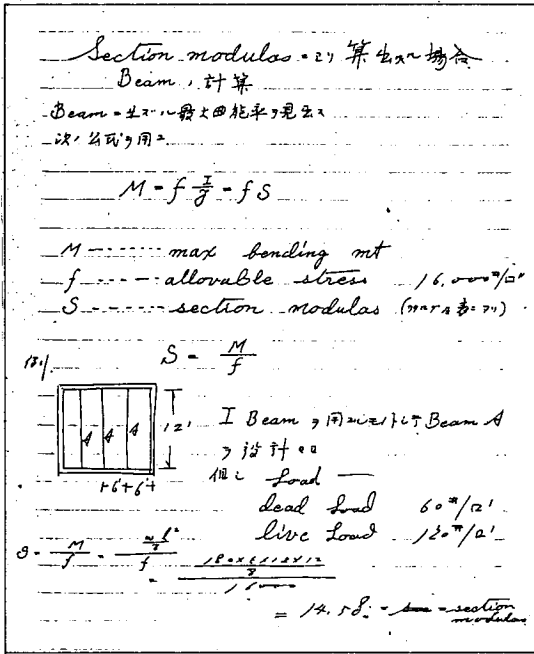 Section modulas ニヨリ 算出スル場合
Beam ノ 計算
Beam ニ生ズル最大曲能率ヲ見出ス
次ノ公式ヲ用フ
M = f I/y = f S
M ------ max bending mt
f ----- allovable stress 16,000#/□"
S ------ section modulas
S = M/f
例/
A A A 12' I Beam ヲ用
Beam A
ヲ設計
6' 6'
但シ Load —
dead Load 60#/□'
live Load 120#/□'
S = M/f = (wl²/8)/f = (180×6×12×12/8)/16000
= 14.58 = section
modulas